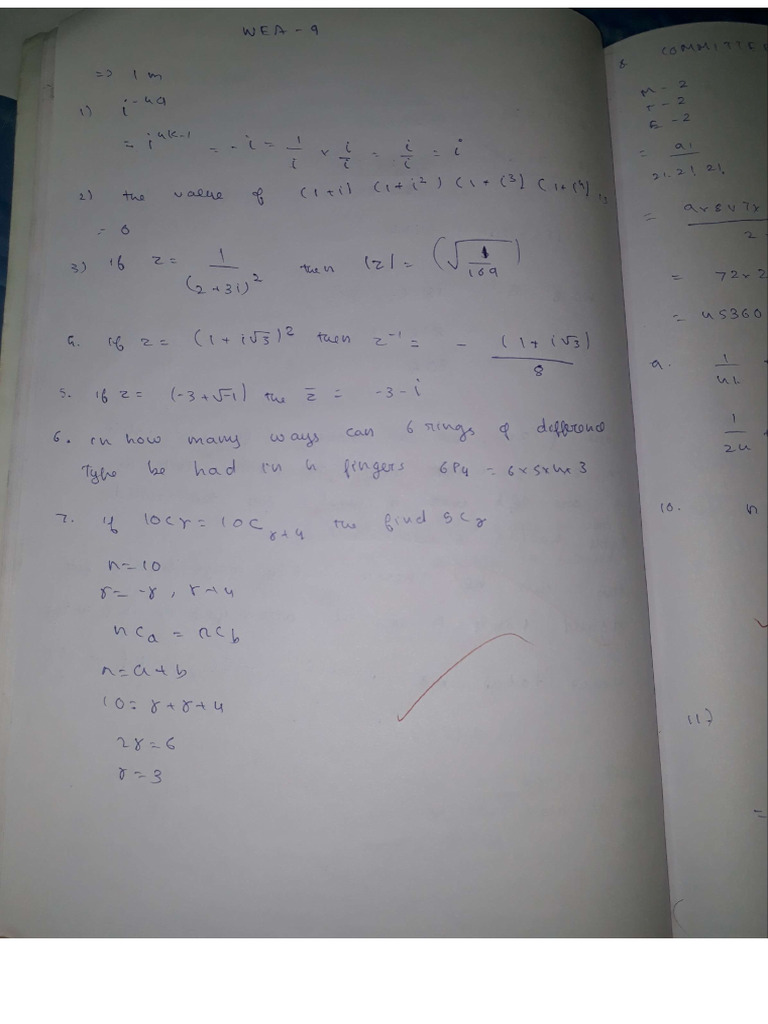 WEA - 9
=> 1 m
1) i^-49
= i^4k-1 = - i = 1/i × i/i = i/i = i
2) the value of (1+i) (1+i²) (1+i³) (1+i⁴) is
= 0
3) if z = 1/(2+3i)² then |z| = (√1/169)
4. if z = (1+i√3)² then z⁻¹ = - (1+i√3)/8
5. if z = (-3+√-1) the z̄ = -3-i
6. in how many ways can 6 rings of difference
Type be had in 4 fingers 6P4 = 6×5×4×3
7. if 10Cr = 10C r+4 the find 5Cr
n=10
r= -r, r+4
nCa = nCb
n=a+b
10= r+r+4
2r=6
r=3
8 COMMITTEE
M - 2
T - 2
E - 2
= 9!
2!.2!.2!
= 9×8×7×
2
= 72×2
= 45360
9. 1/4!
1/24
10. n
11)
=